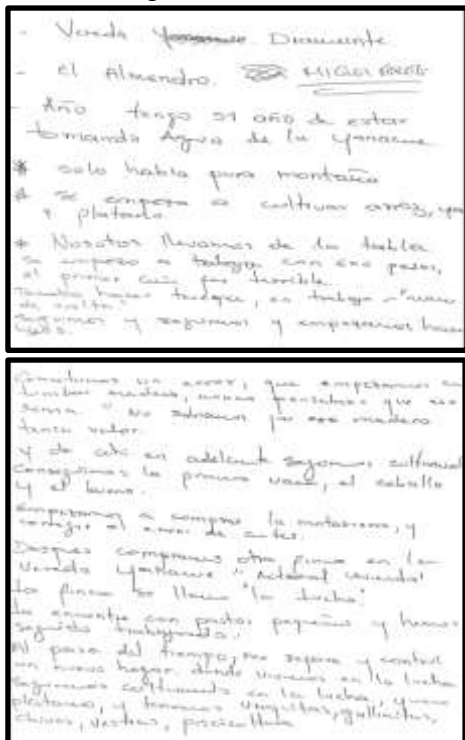 - Vereda Diamante
- el Almendro.
- Año tengo 51 año de estar
tomando Agua de la Yanacue
* solo habia pura montaña
* Se empezo a cultivar arroz, yuca
y platano.
* Nosotros llevamos de la tabla
se empezo a trabajar con eso
el primer fue terrible.
hacer trueque, en trabajo
de
seguimos y seguimos y empezamos hacer
Cometimos un error, que empezamos a
tumbar madera, nunca pensabamos que eso
servia. No sabiamos que esa madera
tenia valor.
y de ahi en adelante seguimos cultivando
Conseguimos la primera vaca, el caballo
y el burro.
empezamos a comprar la motosierra, y
corregir el error de antes.
Despues compramos otra finca en la
Vereda Yanacue "Actual vivienda"
La finca se llama "la lucha"
La encontre con pastos pequeños y hemos
seguido trabajando.
Al paso del tiempo, me separe y consegui
un nuevo hogar donde vivimos en la lucha
Seguimos cultivando en la lucha, yuca
platano, y tenemos vaquitas, gallinitas,
chivos, bestias, piscicultura